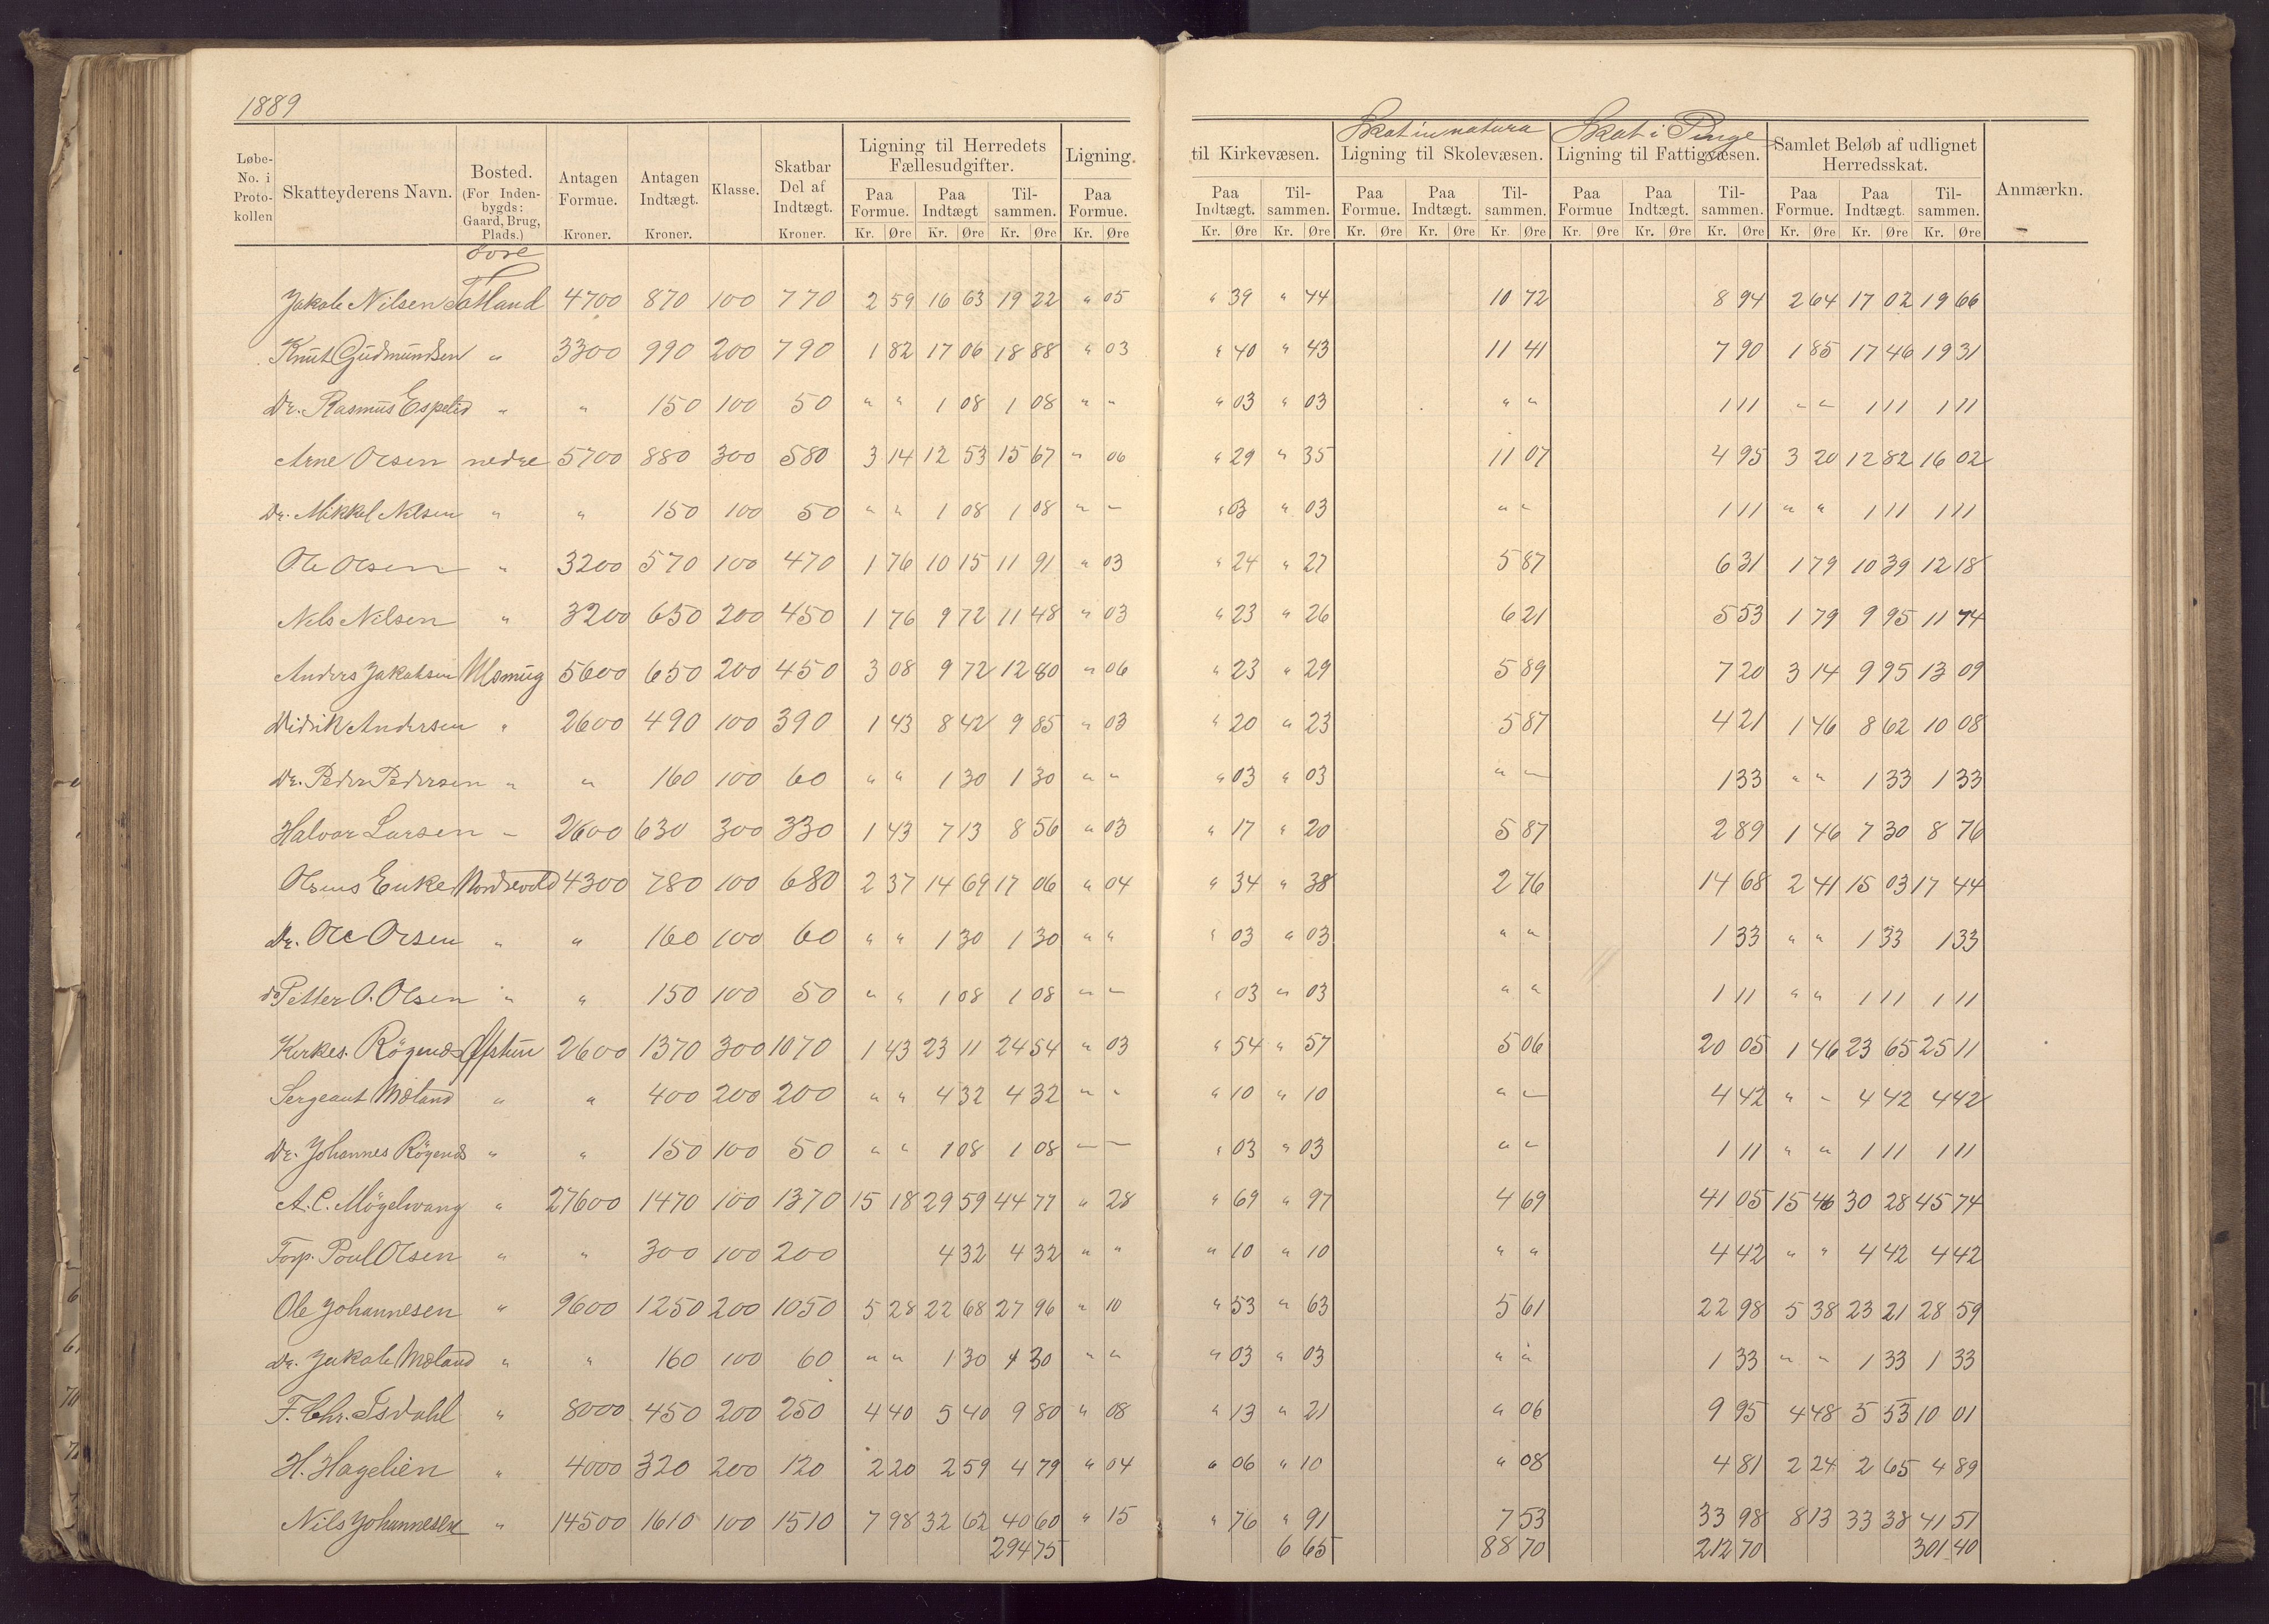 1889
Løbe-No. i Protokollen Skatteyderens Navn. Bosted. (For Indenbygds: Gaard, Brug, Plads.) Antagen Formue. Kroner. Antagen Indtægt. Kroner. Klasse. Skatbar Del af Indtægt. Kroner. Ligning til Herredets Fællesudgifter. Paa Formue. Kr. Øre Paa Indtægt Kr. Øre Tilsammen. Kr. Øre Ligning Paa Formue. Kr. Øre til Kirkevæsen. Paa Indtægt. Kr. Øre Tilsammen. Kr. Øre Skat in natura Ligning til Skolevæsen. Paa Formue. Kr. Øre Paa Indtægt. Kr. Øre Tilsammen. Kr. Øre Skat i Penge Ligning til Fattigvæsen. Paa Formue Kr. Øre Paa Indtægt. Kr. Øre Tilsammen. Kr. Øre Samlet Beløb af udlignet Herredsskat. Paa Formue. Kr. Øre Paa Indtægt. Kr. Øre Tilsammen. Kr. Øre Anmærkn.
Jakob Nilsen Totland 4700 870 100 770 2 59 16 63 19 22 " 05 " 39 " 44 10 72 8 94 2 64 17 02 19 66
Knut Gudmundsen " 3300 990 200 790 1 82 17 06 18 88 " 03 " 40 " 43 11 41 7 90 1 85 17 46 19 31
Dr. Rasmus Espetid " " 150 100 50 " " 1 08 1 08 " " " 03 " 03 " " 1 11 " " 1 11 1 11
Arne Olsen nedre 5700 880 300 580 3 14 12 53 15 67 " 06 " 29 " 35 11 07 4 95 3 20 12 82 16 02
Dr. Mikkel Nilsen " " 150 100 50 " " 1 08 1 08 " " " 03 " 03 " " 1 11 " " 1 11 1 11
Ole Olsen " 3200 570 100 470 1 76 10 15 11 91 " 03 " 24 " 27 5 87 6 31 1 79 10 39 12 18
Nils Nilsen " 3200 650 200 450 1 76 9 72 11 48 " 03 " 23 " 26 6 21 5 53 1 79 9 95 11 74
Anders Jakobsen Ulsmug 5600 650 200 450 3 08 9 72 12 80 " 06 " 23 " 29 5 89 7 20 3 14 9 95 13 09
Didrik Andersen " 2600 490 100 390 1 43 8 42 9 85 " 03 " 20 " 23 5 87 4 21 1 46 8 62 10 08
Dr. Peder Pedersen " " 160 100 60 " " 1 30 1 30 " " " 03 " 03 " " 1 33 " " 1 33 1 33
Halvor Larsen " 2600 630 300 330 1 43 7 13 8 56 " 03 " 17 " 20 5 87 2 89 1 46 7 30 8 76
Olsens Enke Nordrevold 4300 780 100 680 2 37 14 69 17 06 " 04 " 34 " 38 2 76 14 68 2 41 15 03 17 44
Dr. Ole Olsen " " 160 100 60 " " 1 30 1 30 " " " 03 " 03 " " 1 33 " " 1 33 1 33
do Petter O. Olsen " " 150 100 50 " " 1 08 1 08 " " " 03 " 03 " " 1 11 " " 1 11 1 11
Kirkes. Rögends 2600 1370 300 1070 1 43 23 11 24 54 " 03 " 54 " 57 5 06 20 05 1 46 23 65 25 11
Sergeant Moland " " 400 200 200 " " 4 32 4 32 " " " 10 " 10 " " 4 42 " " 4 42 4 42
Dr. Johannes Rögends " " 150 100 50 " " 1 08 1 08 " " " 03 " 03 " " 1 11 " " 1 11 1 11
A. C. Mögelvang " 27600 1470 100 1370 15 18 29 59 44 77 " 28 " 69 " 97 4 69 41 05 15 46 30 28 45 74
Torp. Poul Olsen " " 300 100 200 4 32 4 32 " " " 10 " 10 " " 4 42 " " 4 42 4 42
Ole Johannesen " 9600 1250 200 1050 5 28 22 68 27 96 " 10 " 53 " 63 5 61 22 98 5 38 23 21 28 59
Dr. Jakob Moland " " 160 100 60 " " 1 30 1 30 " " " 03 " 03 " " 1 33 " " 1 33 1 33
F. Chr. Isdahl " 8000 450 200 250 4 40 5 40 9 80 " 08 " 13 " 21 " 06 9 95 4 48 5 53 10 01
H. Hagelien " 4000 320 200 120 2 20 2 59 4 79 " 04 " 06 " 10 " 08 4 81 2 24 2 65 4 89
Nils Johannesen " 14500 1610 100 1510 7 98 32 62 40 60 " 15 " 76 " 91 7 53 33 98 8 13 33 38 41 51
294 75 6 65 88 70 212 70 301 40